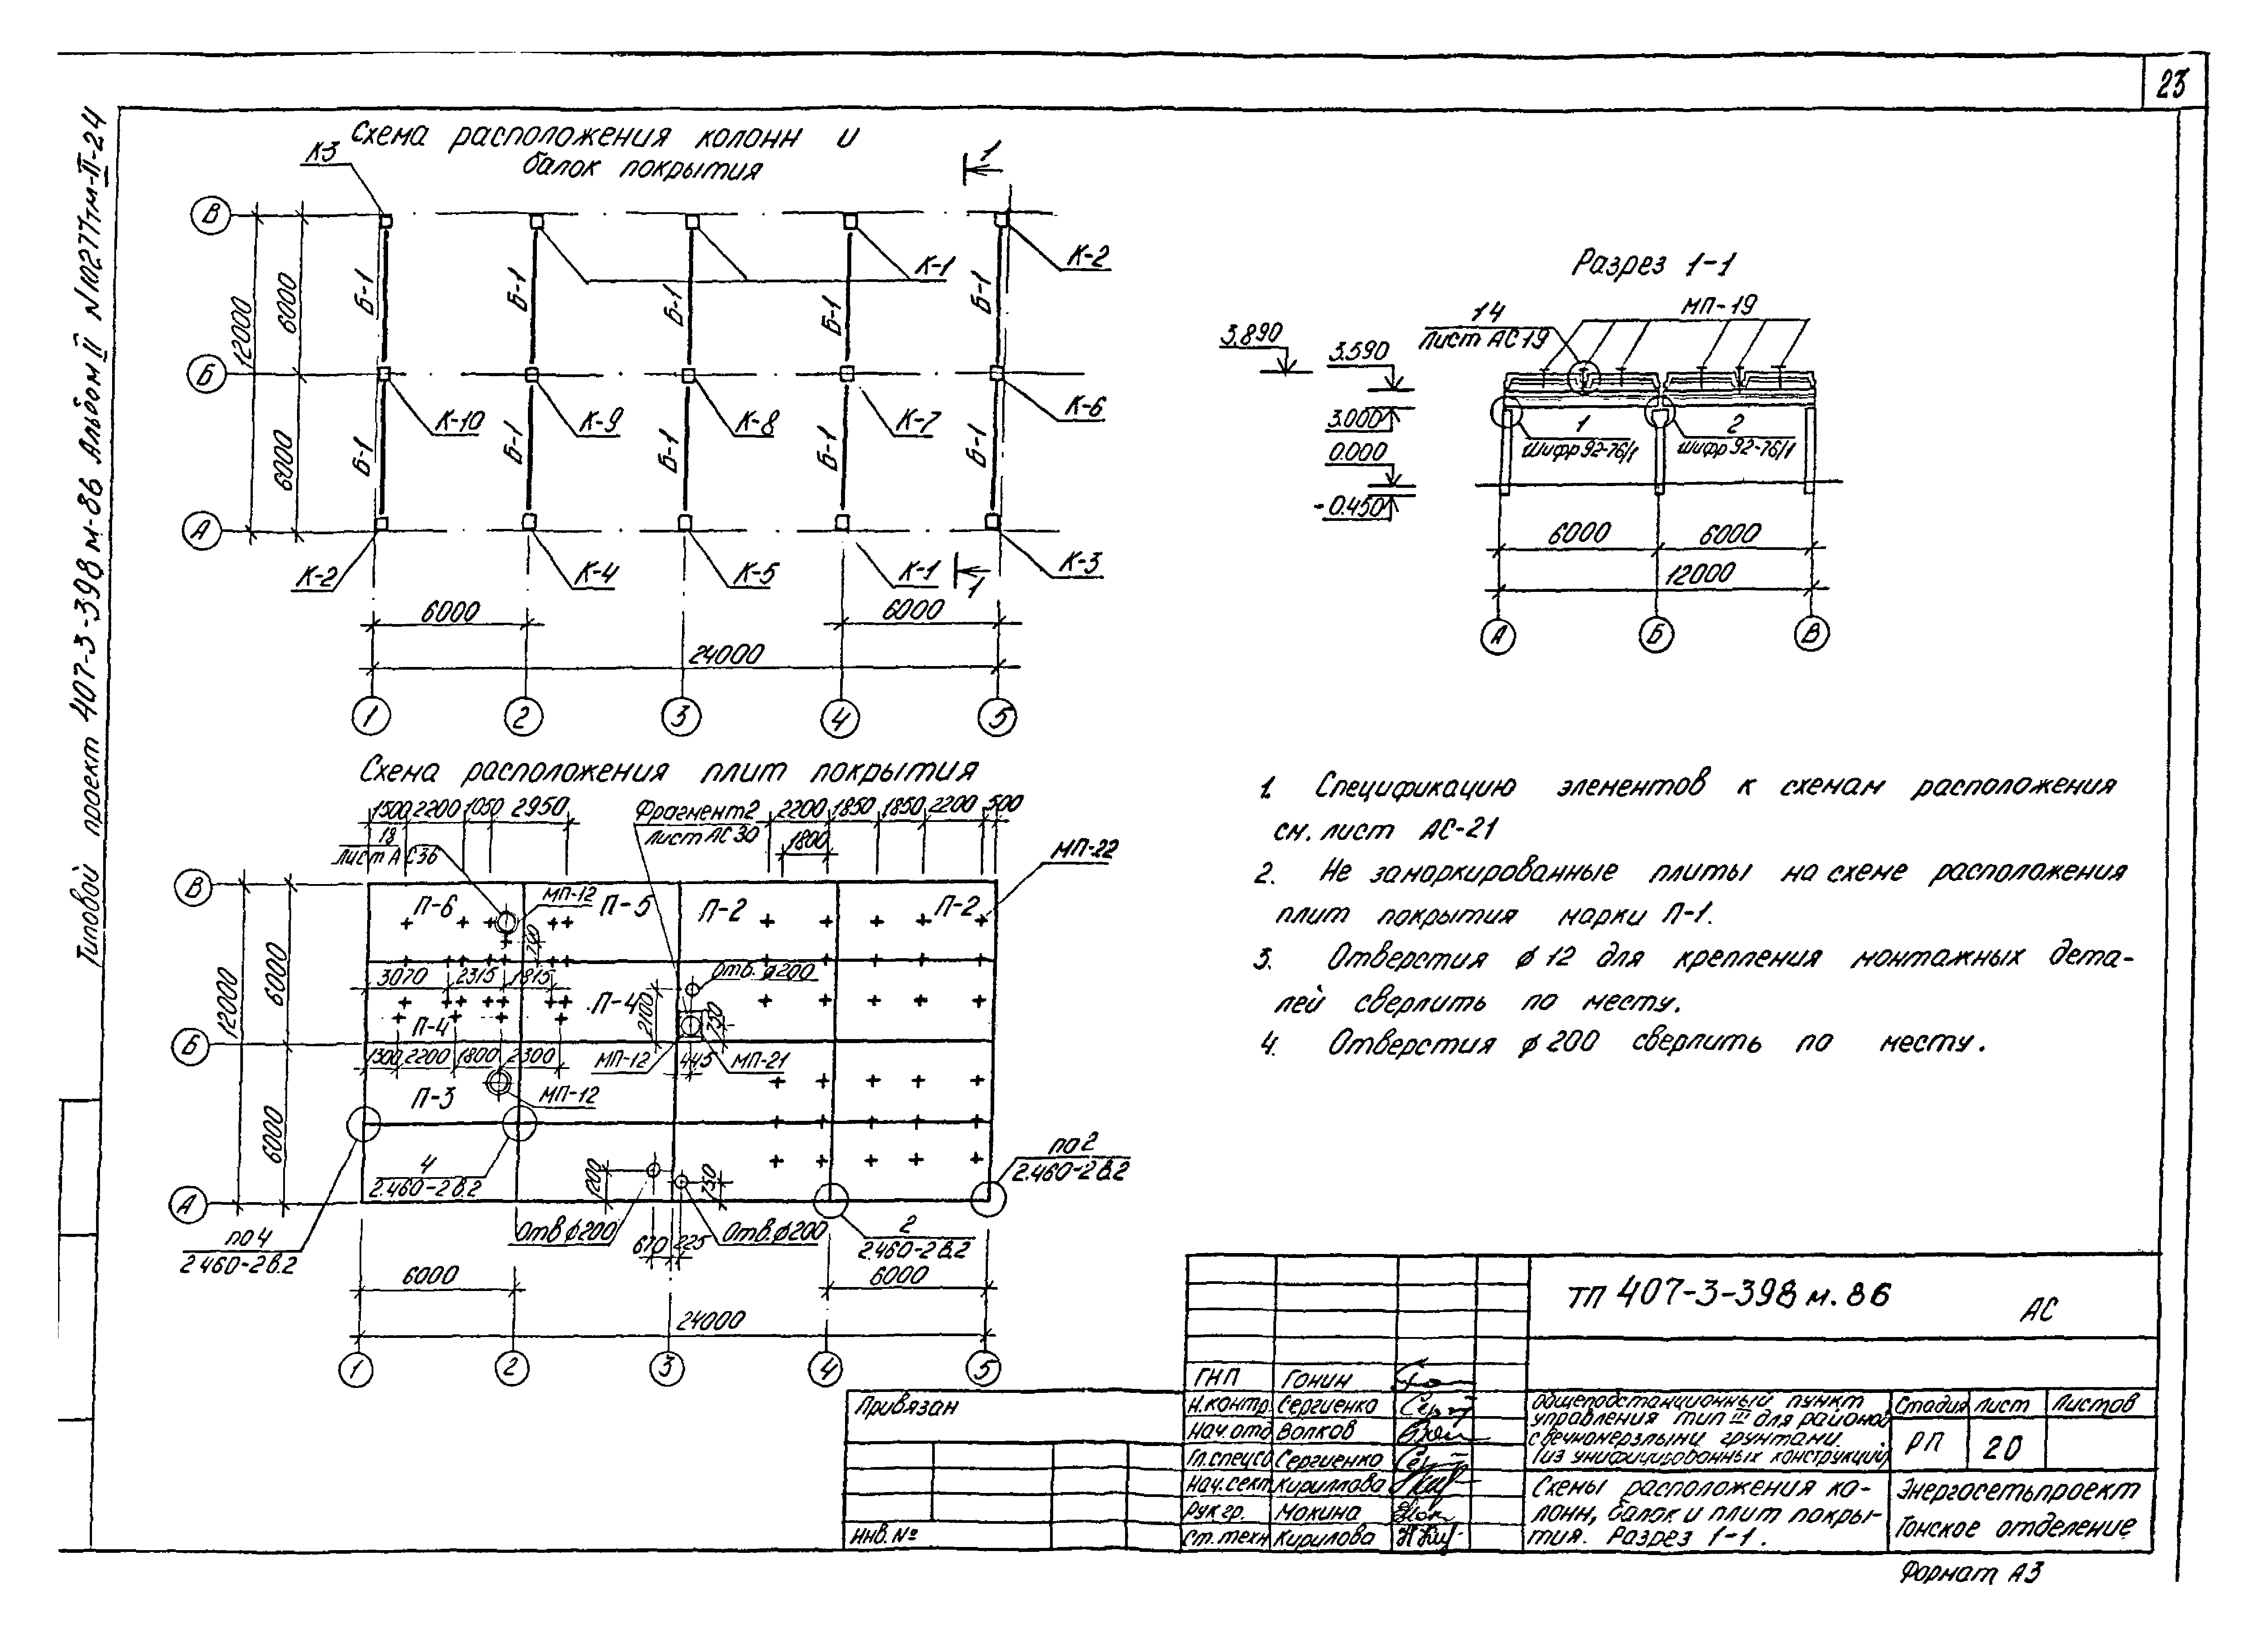 23
Типовой проект 407-3-398м-86 Альбом II N10277тм-II-24
Схема расположения колонн и
балок покрытия
К-3
1
В
Б
А
12000
6000
6000
Б-1
Б-1
Б-1
Б-1
Б-1
Б-1
Б-1
Б-1
Б-1
Б-1
К-1
К-2
К-10
К-9
К-8
К-7
К-6
К-2
К-4
К-5
К-1
1
К-3
6000
6000
24000
1
2
3
4
5
Разрез 1-1
14
Лист АС19
МП-19
3.890
3.590
3.000
0.000
-0.450
1
Шифр 92-76/1
2
Шифр 92-76/1
6000
6000
12000
А
Б
В
Схема расположения плит покрытия
1500 2200 1050 2950
Фрагмент 2
Лист АС30
2200 1850 1850 2200 500
1800
18
Лист АС36
МП-22
В
Б
А
12000
6000
6000
П-6
МП-12
П-5
П-2
П-2
3070
2315
1815
Отв. ϕ200
П-4
П-4
2100
720
1300 2200 1800 2300
МП-12
445
МП-21
П-3
МП-12
4
2.460-2 в.2
1200
750
по 2
2.460-2 в.2
по 4
2.460-2 в.2
Отв ϕ200
670
225
Отв. ϕ200
2
2.460-2 в.2
6000
6000
24000
1
2
3
4
5
1. Спецификацию элементов к схемам расположения
см. лист АС-21
2. Не замаркированные плиты на схеме расположения
плит покрытия марки П-1.
3. Отверстия ϕ 12 для крепления монтажных дета-
лей сверлить по месту.
4. Отверстия ϕ 200 сверлить по месту.
ТП 407-3-398 м.86
АС
ГНП Гонин
Н.контр. Сергиенко
Нач.отд Волков
Гл.спецсо Сергиенко
Нач.сект Кириллова
Рук.гр. Мокина
Ст.техн Кирилова
Привязан
Инв.№
Общеподстанционный пункт
управления тип III для районов
с вечномерзлыми грунтами.
(из унифицированных конструкций)
Стадия Лист Листов
РП 20
Схемы расположения ко-
лонн, балок и плит покры-
тия. Разрез 1-1.
Энергосетьпроект
Томское отделение
Формат А3